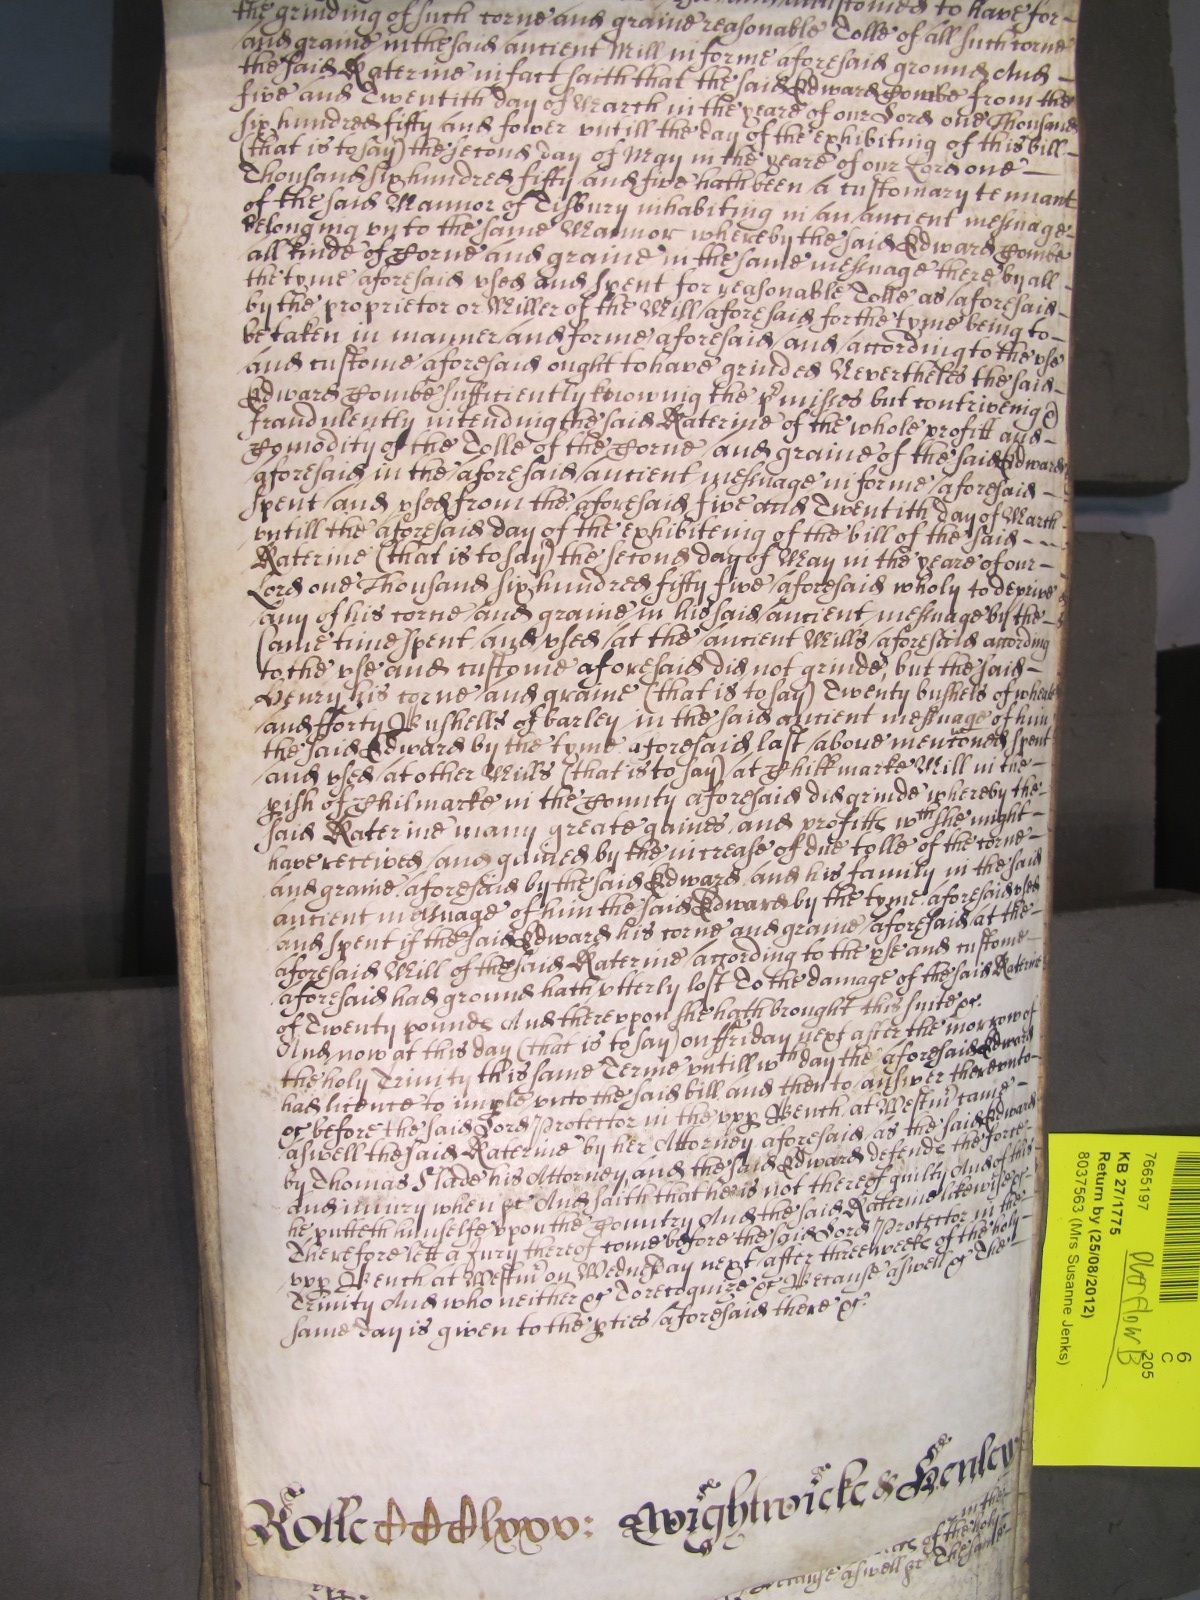 the grinding of such corne and graine reasonable Tolle of all such corne
and graine in the said ancient Mill in forme aforesaid ground And
the said Katerine in fact saith that the said Edward Combe from the
five and Twentith day of March in the yeare of our Lord one Thousand
six hundred fifty and fower untill the day of the exhibiting of this bill
(that is to say) the second day of May in the yeare of our Lord one
Thousand six hundred fifty and five hath been a customary tennant
of the said Mannor of Tisbury inhabiting in an ancient messuage
belonging unto the same Mannor whereby the said Edward Combe
all kinde of Corne and graine in the same messuage there by all
the tyme aforesaid used and spent for reasonable Tolle as aforesaid
by the proprietor or Miller of the Mill aforesaid for the tyme being to
be taken in manner and forme aforesaid and according to the use
and custome aforesaid ought to have grinded Nevertheles the said
Edward Combe sufficiently knowing the pmisses but contriveing &
fraudulently intending the said Katerine of the whole profitt and
Comodity of the Tolle of the Corne and graine of the said Edward
aforesaid in the aforesaid ancient messuage in forme aforesaid
spent and used from the aforesaid five and Twentith day of March
untill the aforesaid day of the exhibiteing of the bill of the said
Katerine (that is to say) the second day of May in the yeare of our
Lord one Thousand six hundred fifty five aforesaid wholy to deprive
any of his corne and graine in his said ancient messuage by the
same time spent and used at the ancient Mills aforesaid according
to the use and custome aforesaid did not grinde, but the said
Henry his corne and graine (that is to say) Twenty bushels of wheate
and fforty Bushells of barley in the said ancient messuage of him
the said Edward by the tyme aforesaid last above mentioned spent
and used at other Mills (that is to say) at Chilkmarke Mill in the
pish of Chilmarke in the County aforesaid did grinde whereby the
said Katerine many greate gaines and profitts wch she might
have received and gained by the increase of due tolle of the corne
and graine aforesaid by the said Edward and his family in the said
ancient messuage of him the said Edward by the tyme aforesaid used
and spent if the said Edward his corne and graine aforesaid at the
aforesaid Mill of the said Katerine according to the use and custome
aforesaid had ground hath utterly lost To the damage of the said Katerine
of Twenty pounds And thereupon she hath brought this suite &c
And now at this day (that is to say) on ffriday next after the morrow of
the holy Trinity this same Terme untill wch day the aforesaid Edward
had licence to imple unto the said bill and then to answer thereunto
&c before the said Lord Protector in the upp Bench at Westm came
aswell the said Katerine by her Attorney aforesaid as the said Edward
by Thomas Slade his Attorney, and the said Edward defends the force
and injury when &c And saith that he is not thereof guilty And of this
he putteth himselfe upon the Country And the said Katerine likewise &c
Therefore lett a Jury thereof come before the said Lord Protector in the
upp Bench at Westm on Wednesday next after three weeks of the holy
Trinity And who neither &c To recognize &c Because aswell &c The
same day is given to the pties aforesaid there &c
Rolle CCClxxv: Wightwicke & Henley
in the
of the holy
Because aswell &c The same
7665197
KB 27/1775
Return by (25/08/2012)
8037563 (Mrs Susanne Jenks)
Overflow B
205
6
C